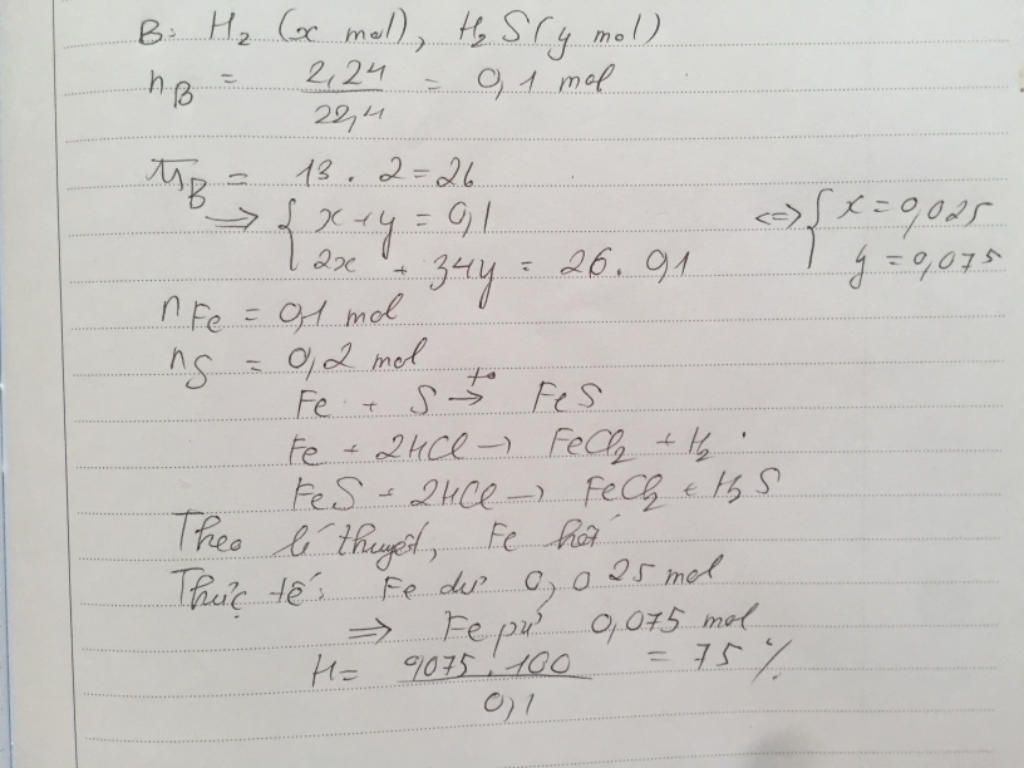 B: H₂ (x mol), H₂S (y mol)
n_B = 2,24 / 22,4 = 0,1 mol
M̅_B = 13 . 2 = 26
⇒ { x + y = 0,1
2x + 34y = 26 . 0,1
⇔ { x = 0,025
y = 0,075
n_Fe = 0,1 mol
n_S = 0,2 mol
Fe + S →(t°) FeS
Fe + 2HCl → FeCl₂ + H₂
FeS + 2HCl → FeCl₂ + H₂S
Theo lí thuyết, Fe hết
Thực tế: Fe dư 0,025 mol
⇒ Fe pứ 0,075 mol
H = 0,075 . 100 / 0,1 = 75 %